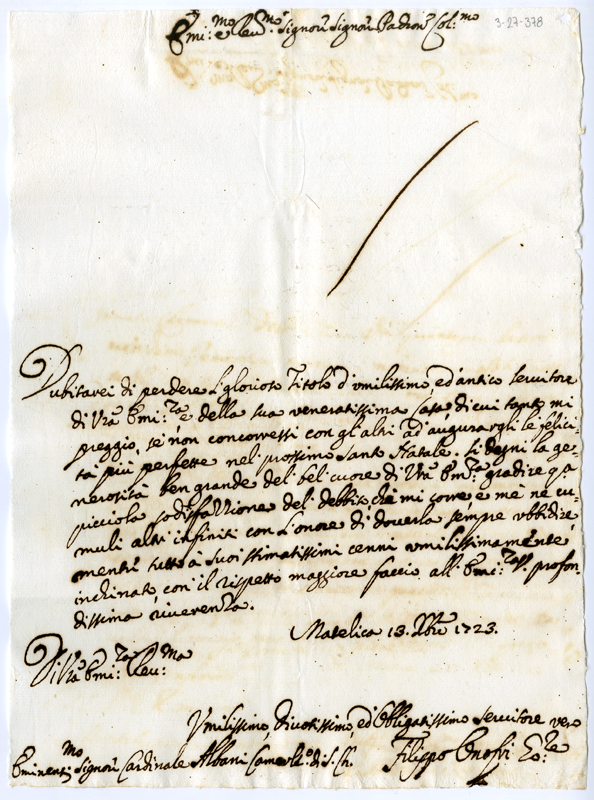 3-27-378
Emi:mo e Reu:mo Signor Signor Padron Col:mo
Dubitarei di perdere l'glorioso Titolo d'vmilissimo, ed'antico seruitore
di Vra Emi:za e della sua veneratissima Casa, di cui tanto mi
preggio, se non concorressi con gl'altri ad'augurargli le felici-
tà più perfette nel prossimo Santo Natale. Si degni la ge-
nerosità ben grande del bel cuore di Vra Emza gradire qa
picciola sodisfazzione del debito, che mi corre, e me ne cu-
muli altri infiniti con l'onore di douerla sempre vbbidire
mentre tutto à suoi stimatissimi cenni vmilissimamente
inchinato con'il rispetto maggiore faccio all'Emi:za V. profon-
dissima riuerenza.
Matelica 13. Xbre 1723.
Di Vra Emi:za Reu:ma
Vmilissimo, Diuotissimo, ed'Obbligatissimo seruitore vero
Eminenti:mo Signor Cardinale Albani Camerl:o di S. Ch. Filippo Onofri